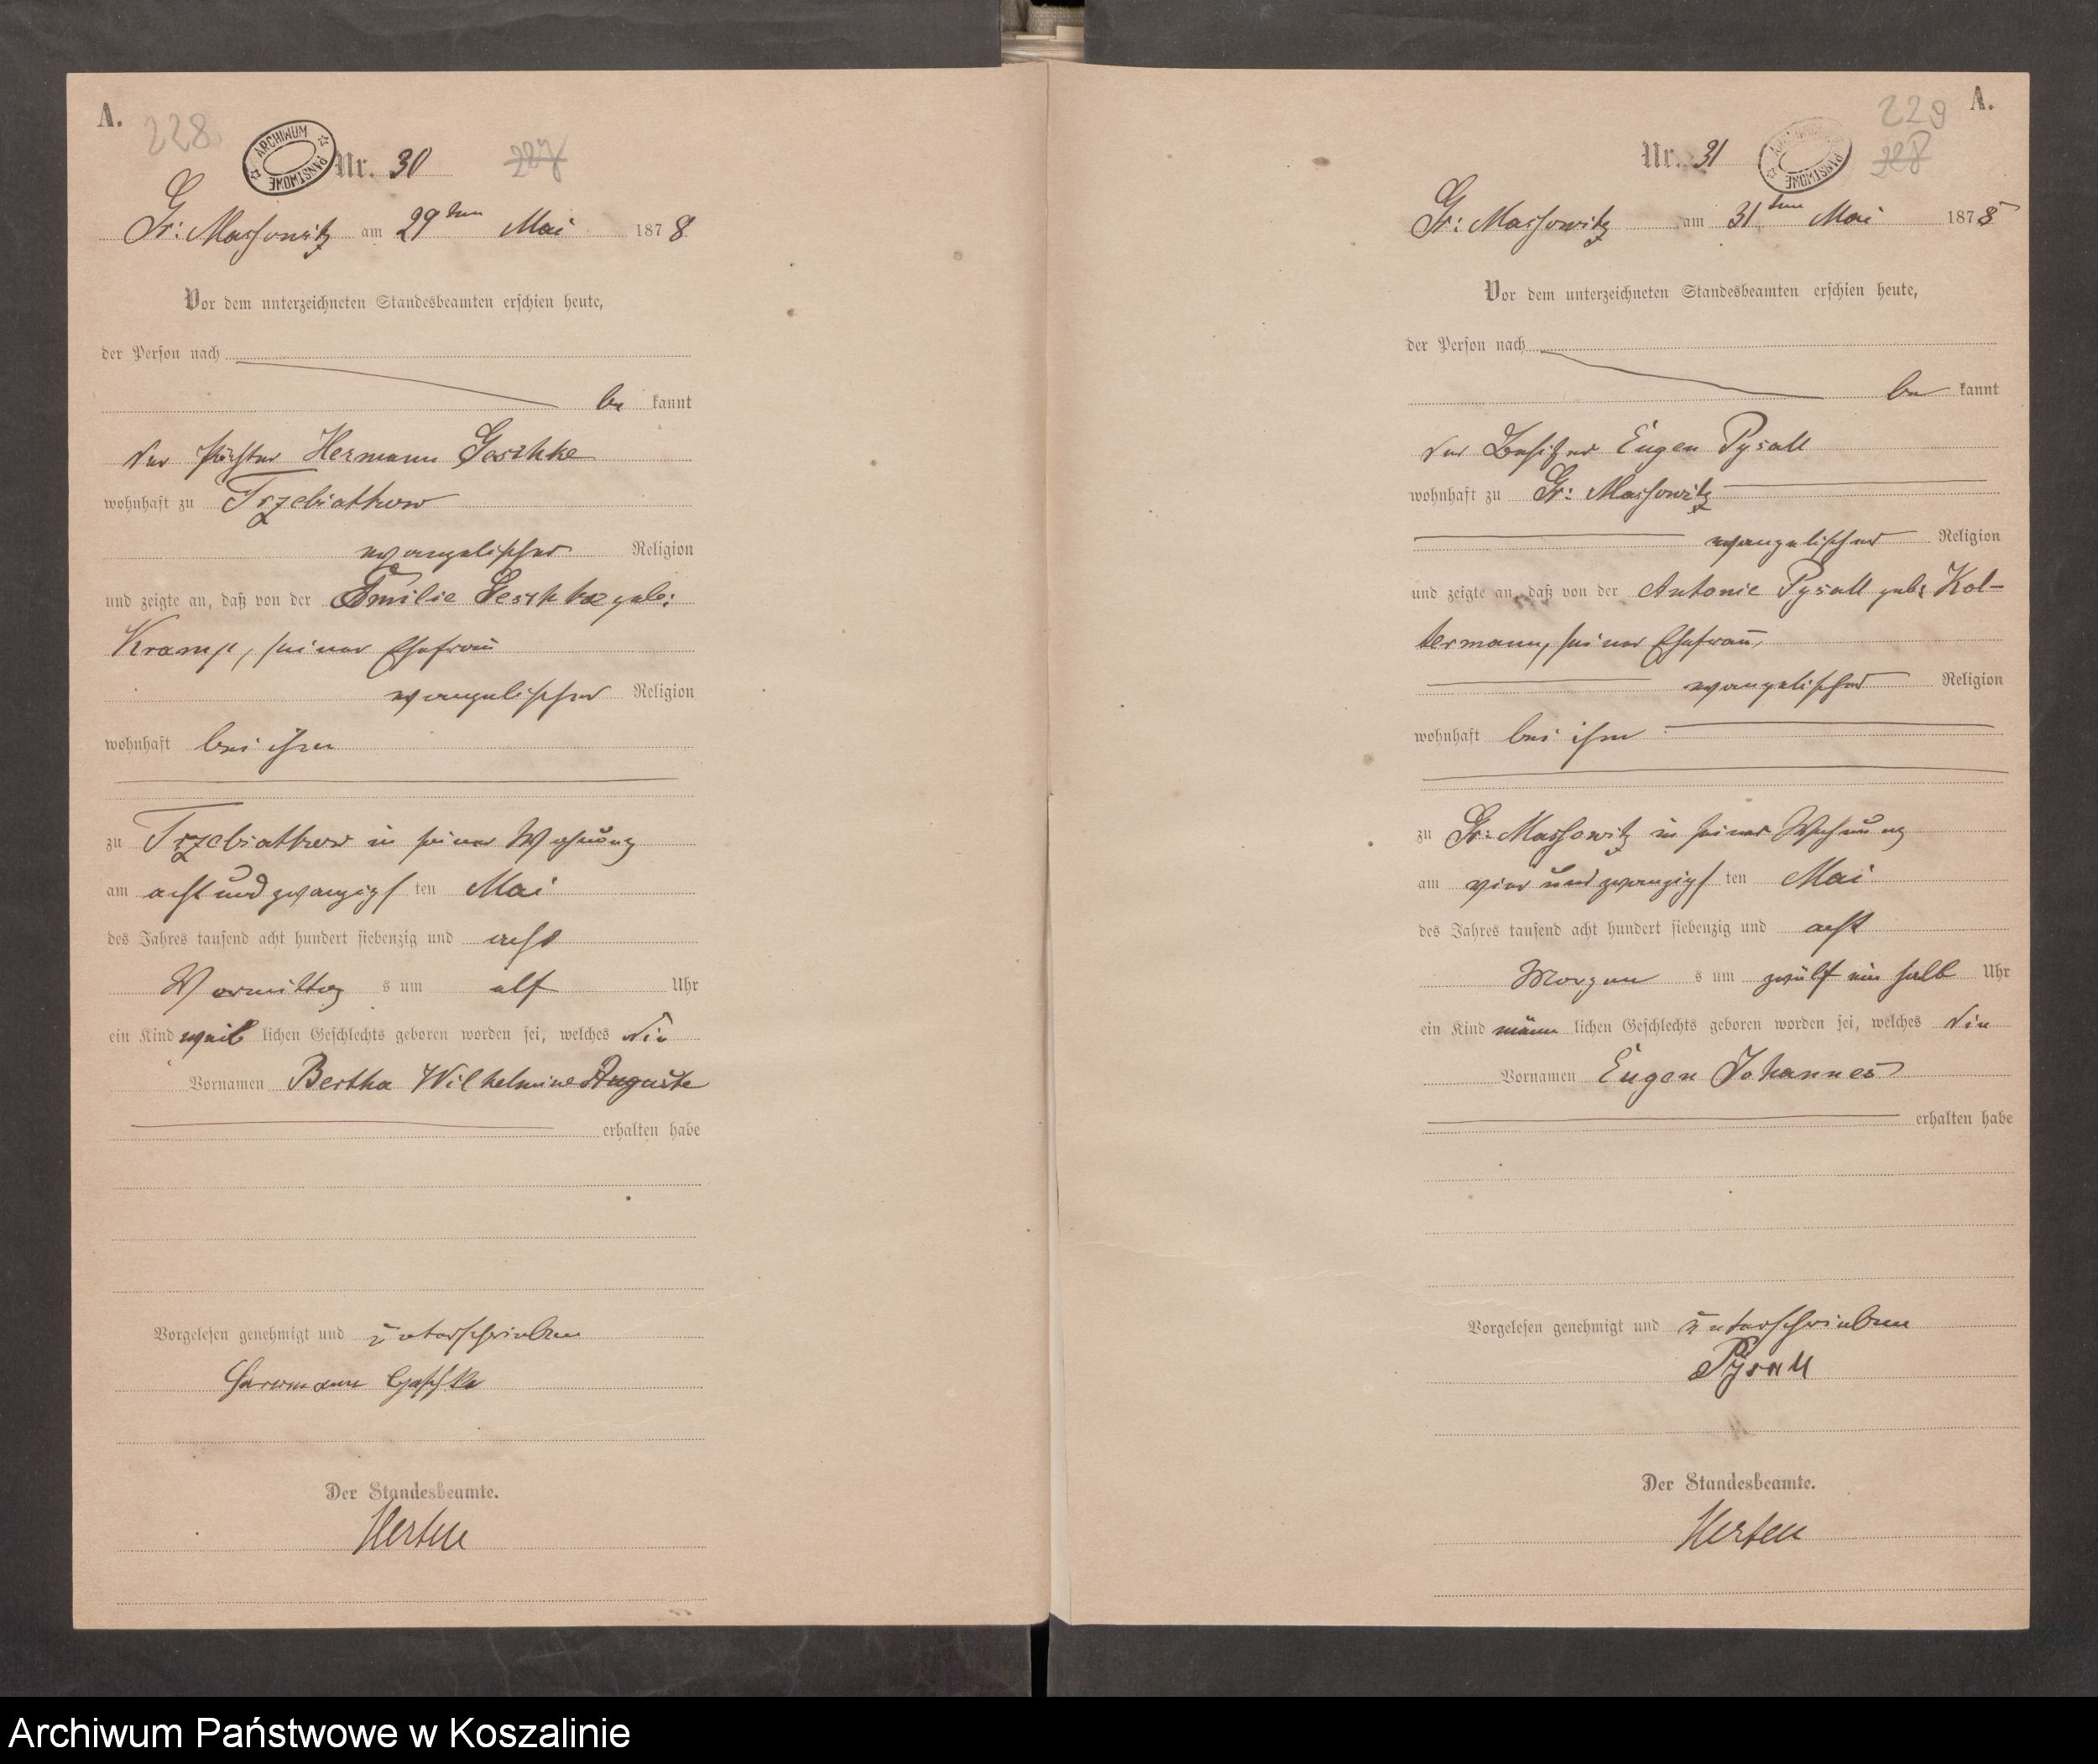 A.
228
ARCHIWUM PAŃSTWOWE
Nr. 30
227
Gr: Massowitz am 29ten Mai 1878
Vor dem unterzeichneten Standesbeamten erschien heute,
der Person nach
be kannt
der Förster Hermann Geschke
wohnhaft zu Trzebiatkow
evangelischer Religion
und zeigte an, daß von der Emilie Geschke geb:
Kramp, seiner Ehefrau
evangelischer Religion
wohnhaft bei ihm
zu Trzebiatkow in seiner Wohnung
am acht und zwanzigs ten Mai
des Jahres tausend acht hundert siebenzig und acht
Vormittag s um elf Uhr
ein Kind weib lichen Geschlechts geboren worden sei, welches die
Vornamen Bertha Wilhelmine Auguste
erhalten habe
Vorgelesen genehmigt und unterschrieben
Herrmann Geschke
Der Standesbeamte.
Herten
A.
229
Nr. 31
ARCHIWUM PAŃSTWOWE
228
Gr: Massowitz am 31ten Mai 1878
Vor dem unterzeichneten Standesbeamten erschien heute,
der Person nach
be kannt
der Besitzer Eugen Pysall
wohnhaft zu Gr: Massowitz
evangelischer Religion
und zeigte an, daß von der Antonie Pysall geb: Kol-
termann, seiner Ehefrau,
evangelischer Religion
wohnhaft bei ihm
zu Gr: Massowitz in seiner Wohnung
am vier und zwanzigs ten Mai
des Jahres tausend acht hundert siebenzig und acht
Morgen s um zwölf ein halb Uhr
ein Kind männ lichen Geschlechts geboren worden sei, welches die
Vornamen Eugen Johannes
erhalten habe
Vorgelesen genehmigt und unterschrieben
Pysall
Der Standesbeamte.
Herten
Archiwum Państwowe w Koszalinie